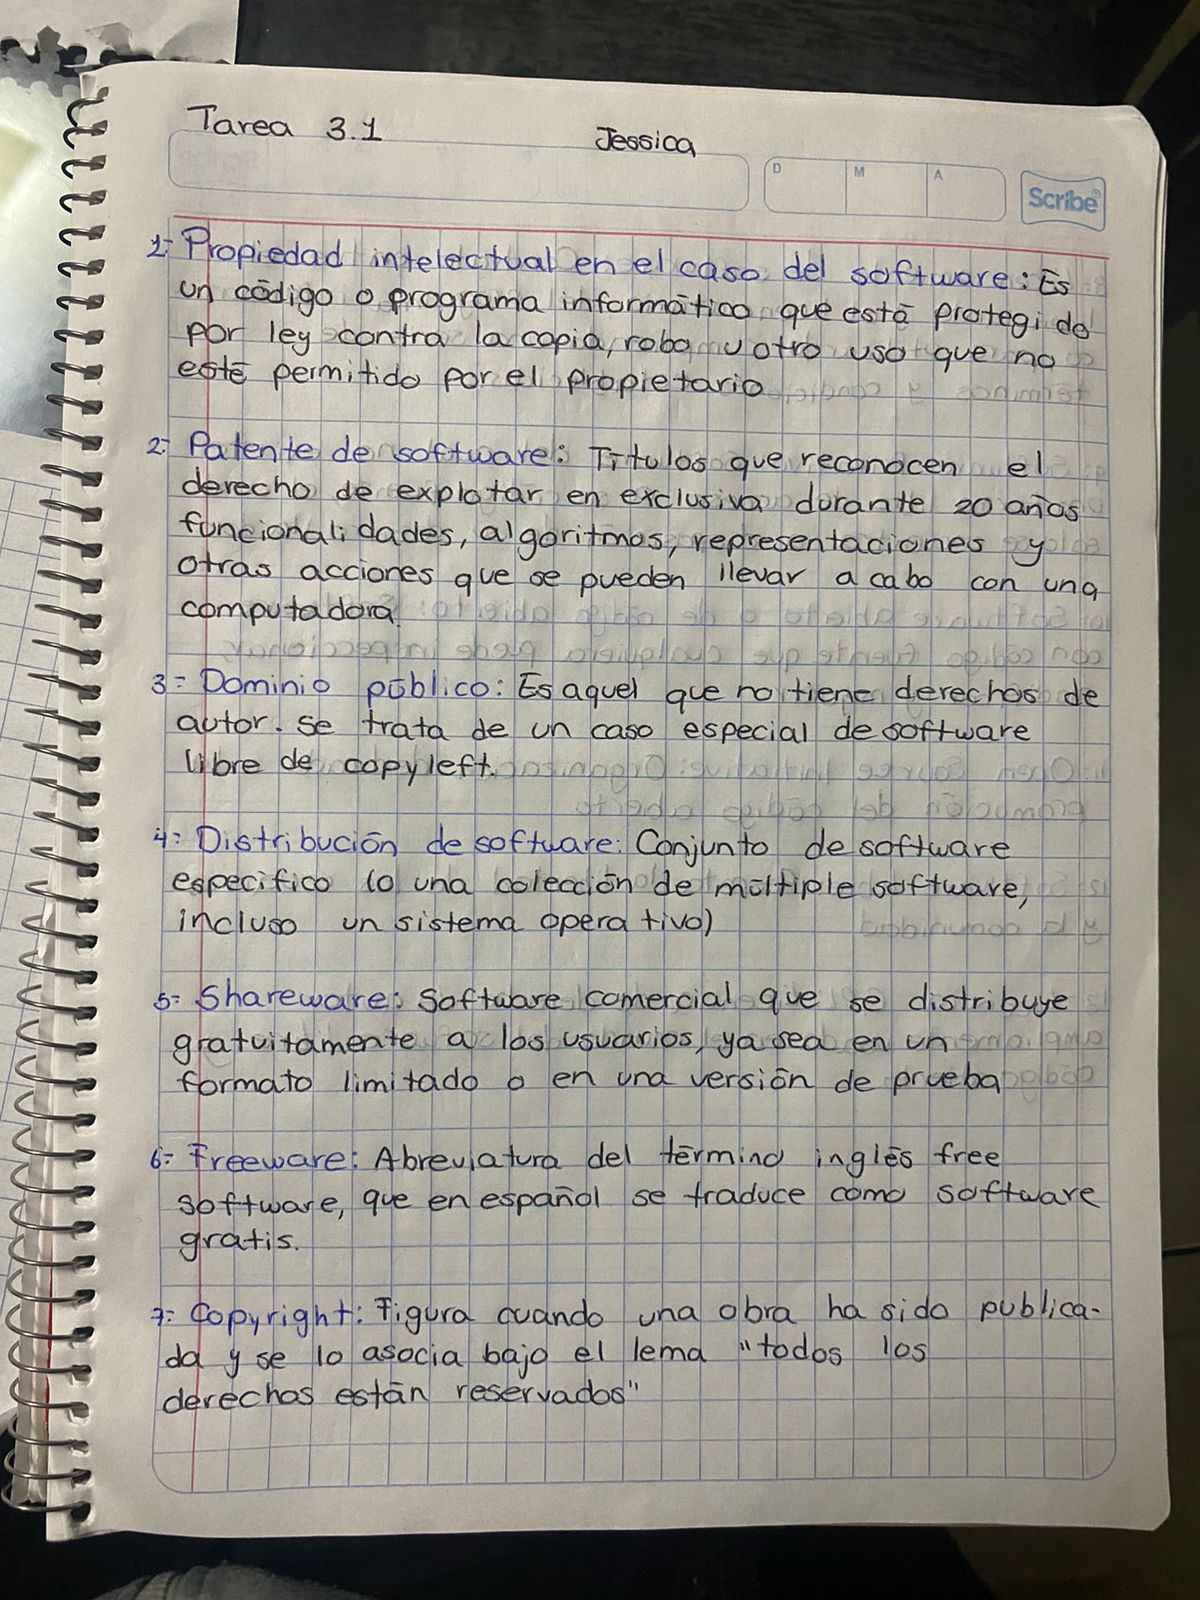 Tarea 3.1 Jessica
D M A
Scribe®
1- Propiedad intelectual en el caso del software: Es
un código o programa informático que está protegido
por ley contra la copia, robo u otro uso que no
esté permitido por el propietario
2- Patente de software: Títulos que reconocen el
derecho de explotar en exclusiva durante 20 años
funcionalidades, algoritmos, representaciones y
otras acciones que se pueden llevar a cabo con una
computadora.
3- Dominio público: Es aquel que no tiene derechos de
autor. Se trata de un caso especial de software
libre de copyleft.
4- Distribución de software: Conjunto de software
específico (o una colección de múltiple software,
incluso un sistema operativo)
5- Shareware: Software comercial que se distribuye
gratuitamente a los usuarios, ya sea en un
formato limitado o en una versión de prueba
6- Freeware: Abreviatura del término inglés free
software, que en español se traduce como software
gratis.
7- Copyright: Figura cuando una obra ha sido publica-
da y se lo asocia bajo el lema "todos los
derechos están reservados"